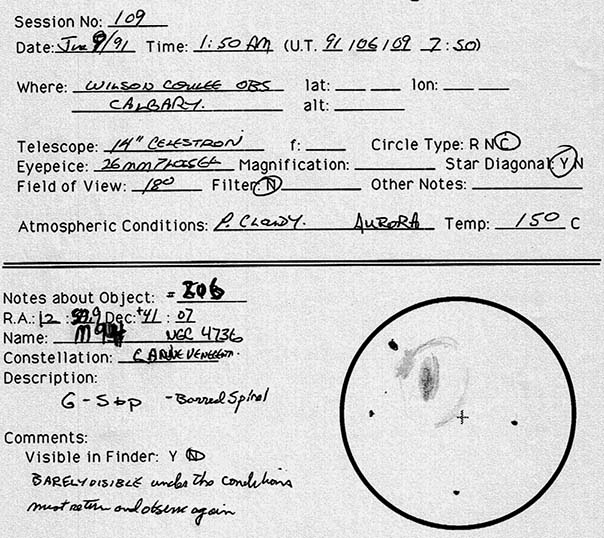 Session No: 109
Date: Jun 9/91 Time: 1:50 AM (U.T. 91/06/09 7:50)
Where: WILSON COULEE OBS lat: lon:
CALGARY. alt:
Telescope: 14" CELESTRON f: Circle Type: R N C
Eyepeice: 26mm Magnification: Star Diagonal: Y N
Field of View: 180 Filter: N Other Notes:
Atmospheric Conditions: P. Cloudy. AURORA Temp: 150 C
Notes about Object: =
R.A.: 12 : Dec: +41 : 07
Name: M94 NGC 4736
Constellation:
Description:
G - Sbp - Barred Spiral
Comments:
Visible in Finder: Y N
BARELY VISIBLE under the conditions
must return and observe again